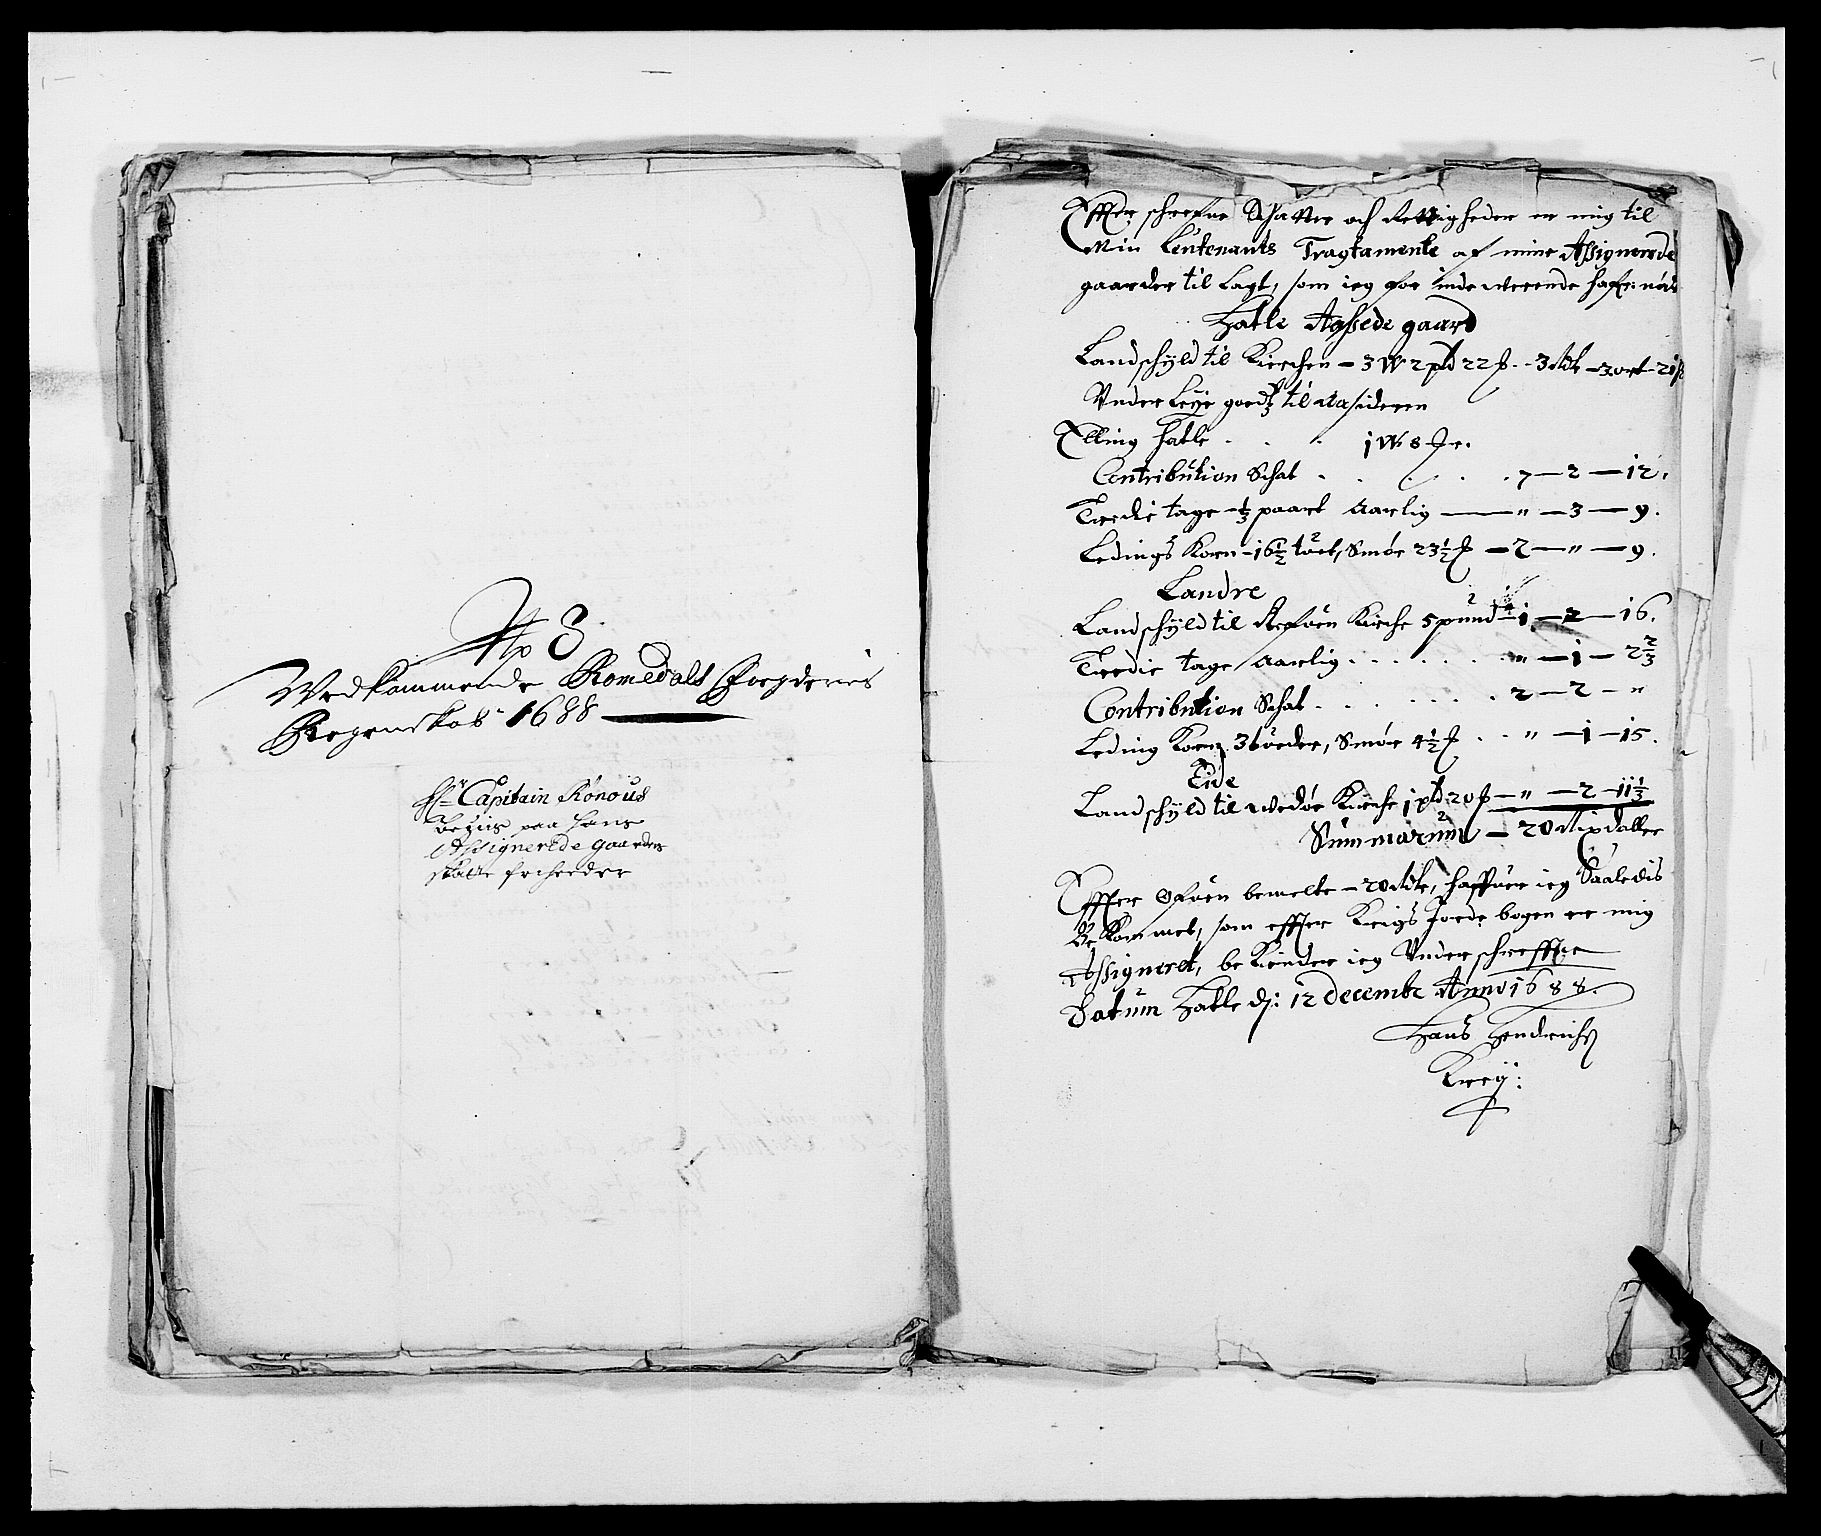 No 8
Vedkommende Romsdals Fogderies
Regenskab 1688
Hr Capitain Rønous
beviis paa hans
Assignerede gaarder
skatte
Effter schrefne Schatter och Rettigheder er mig til
Min Leutenants Tragtamente af mine Assignerede
gaarder til Lagt, som ieg for inde werende
Hatle Aasæde gaard
Landschyld til Kirchen - 3 W 2 pd 22 - 3 Rdr - 3 ort - 21 ß
Vnder Leÿe goedtz til Aasideren
Elling Hatle . . . 1 W 8
Contribution Schat . . . . . 7 - 2 - 12.
Tredie tage - 1/3 paart Aarlig - " - 3 - 9.
Ledings Korn - 16 1/2 , Smør 23 1/2 - 2 - " - 9.
Landre
Landschÿld til Kirche 5 pund - 1 - 2 - 16.
Tredie tage Aarlig . . . . . . " - 1 - 2 2/3
Contribution Schat . . . . . . . 2 - 2 - "
Leding Korn 3 , Smør 4 1/2 . . " - 1 - 15.
Eide
Landschÿld til Wedøe Kirche 1 pd 20 - " - 2 - 11 1/3
Summarum - 20 Rixdaller
Effter Ofuen bemelte - 20 Rdr, haffuer ieg Saaledis
Bekommet, som effter Krigs Jorde bogen er mig
Assigneret, be Kiender ieg Vnderschreffne
Datum Hatle d: 12 decembr Anno 1688.
Hans Hendrichs
Kreÿ: